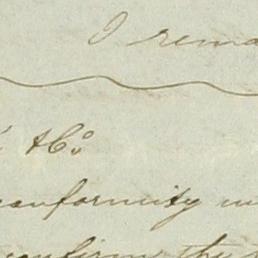 I rema
&Co
conformity w
confirm the